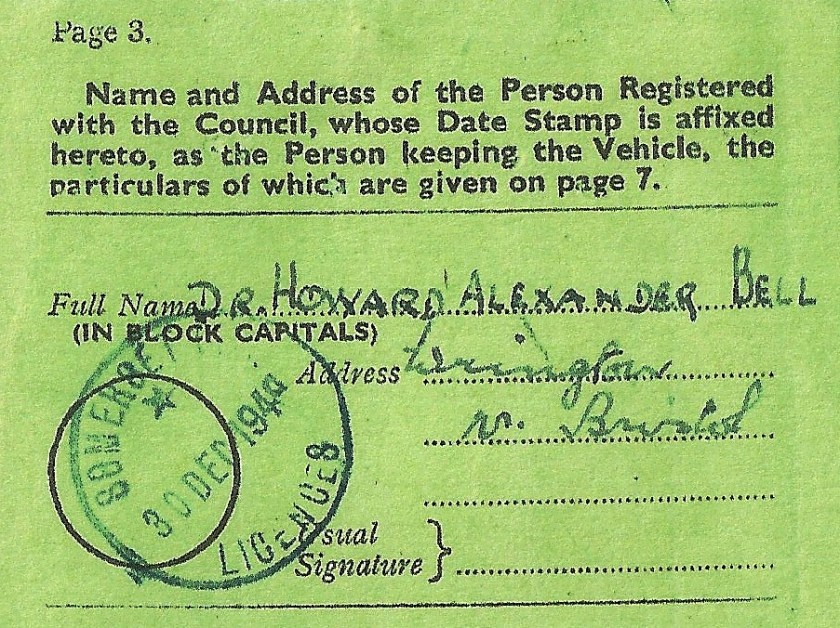 Page 3.
Name and Address of the Person Registered
with the Council, whose Date Stamp is affixed
hereto, as the Person keeping the Vehicle, the
particulars of which are given on page 7.
Full Name DR. HOWARD ALEXANDER BELL
(IN BLOCK CAPITALS)
Address Wrington
nr. Bristol
SOMERSET
30 DEC
LICENCES
Usual
Signature